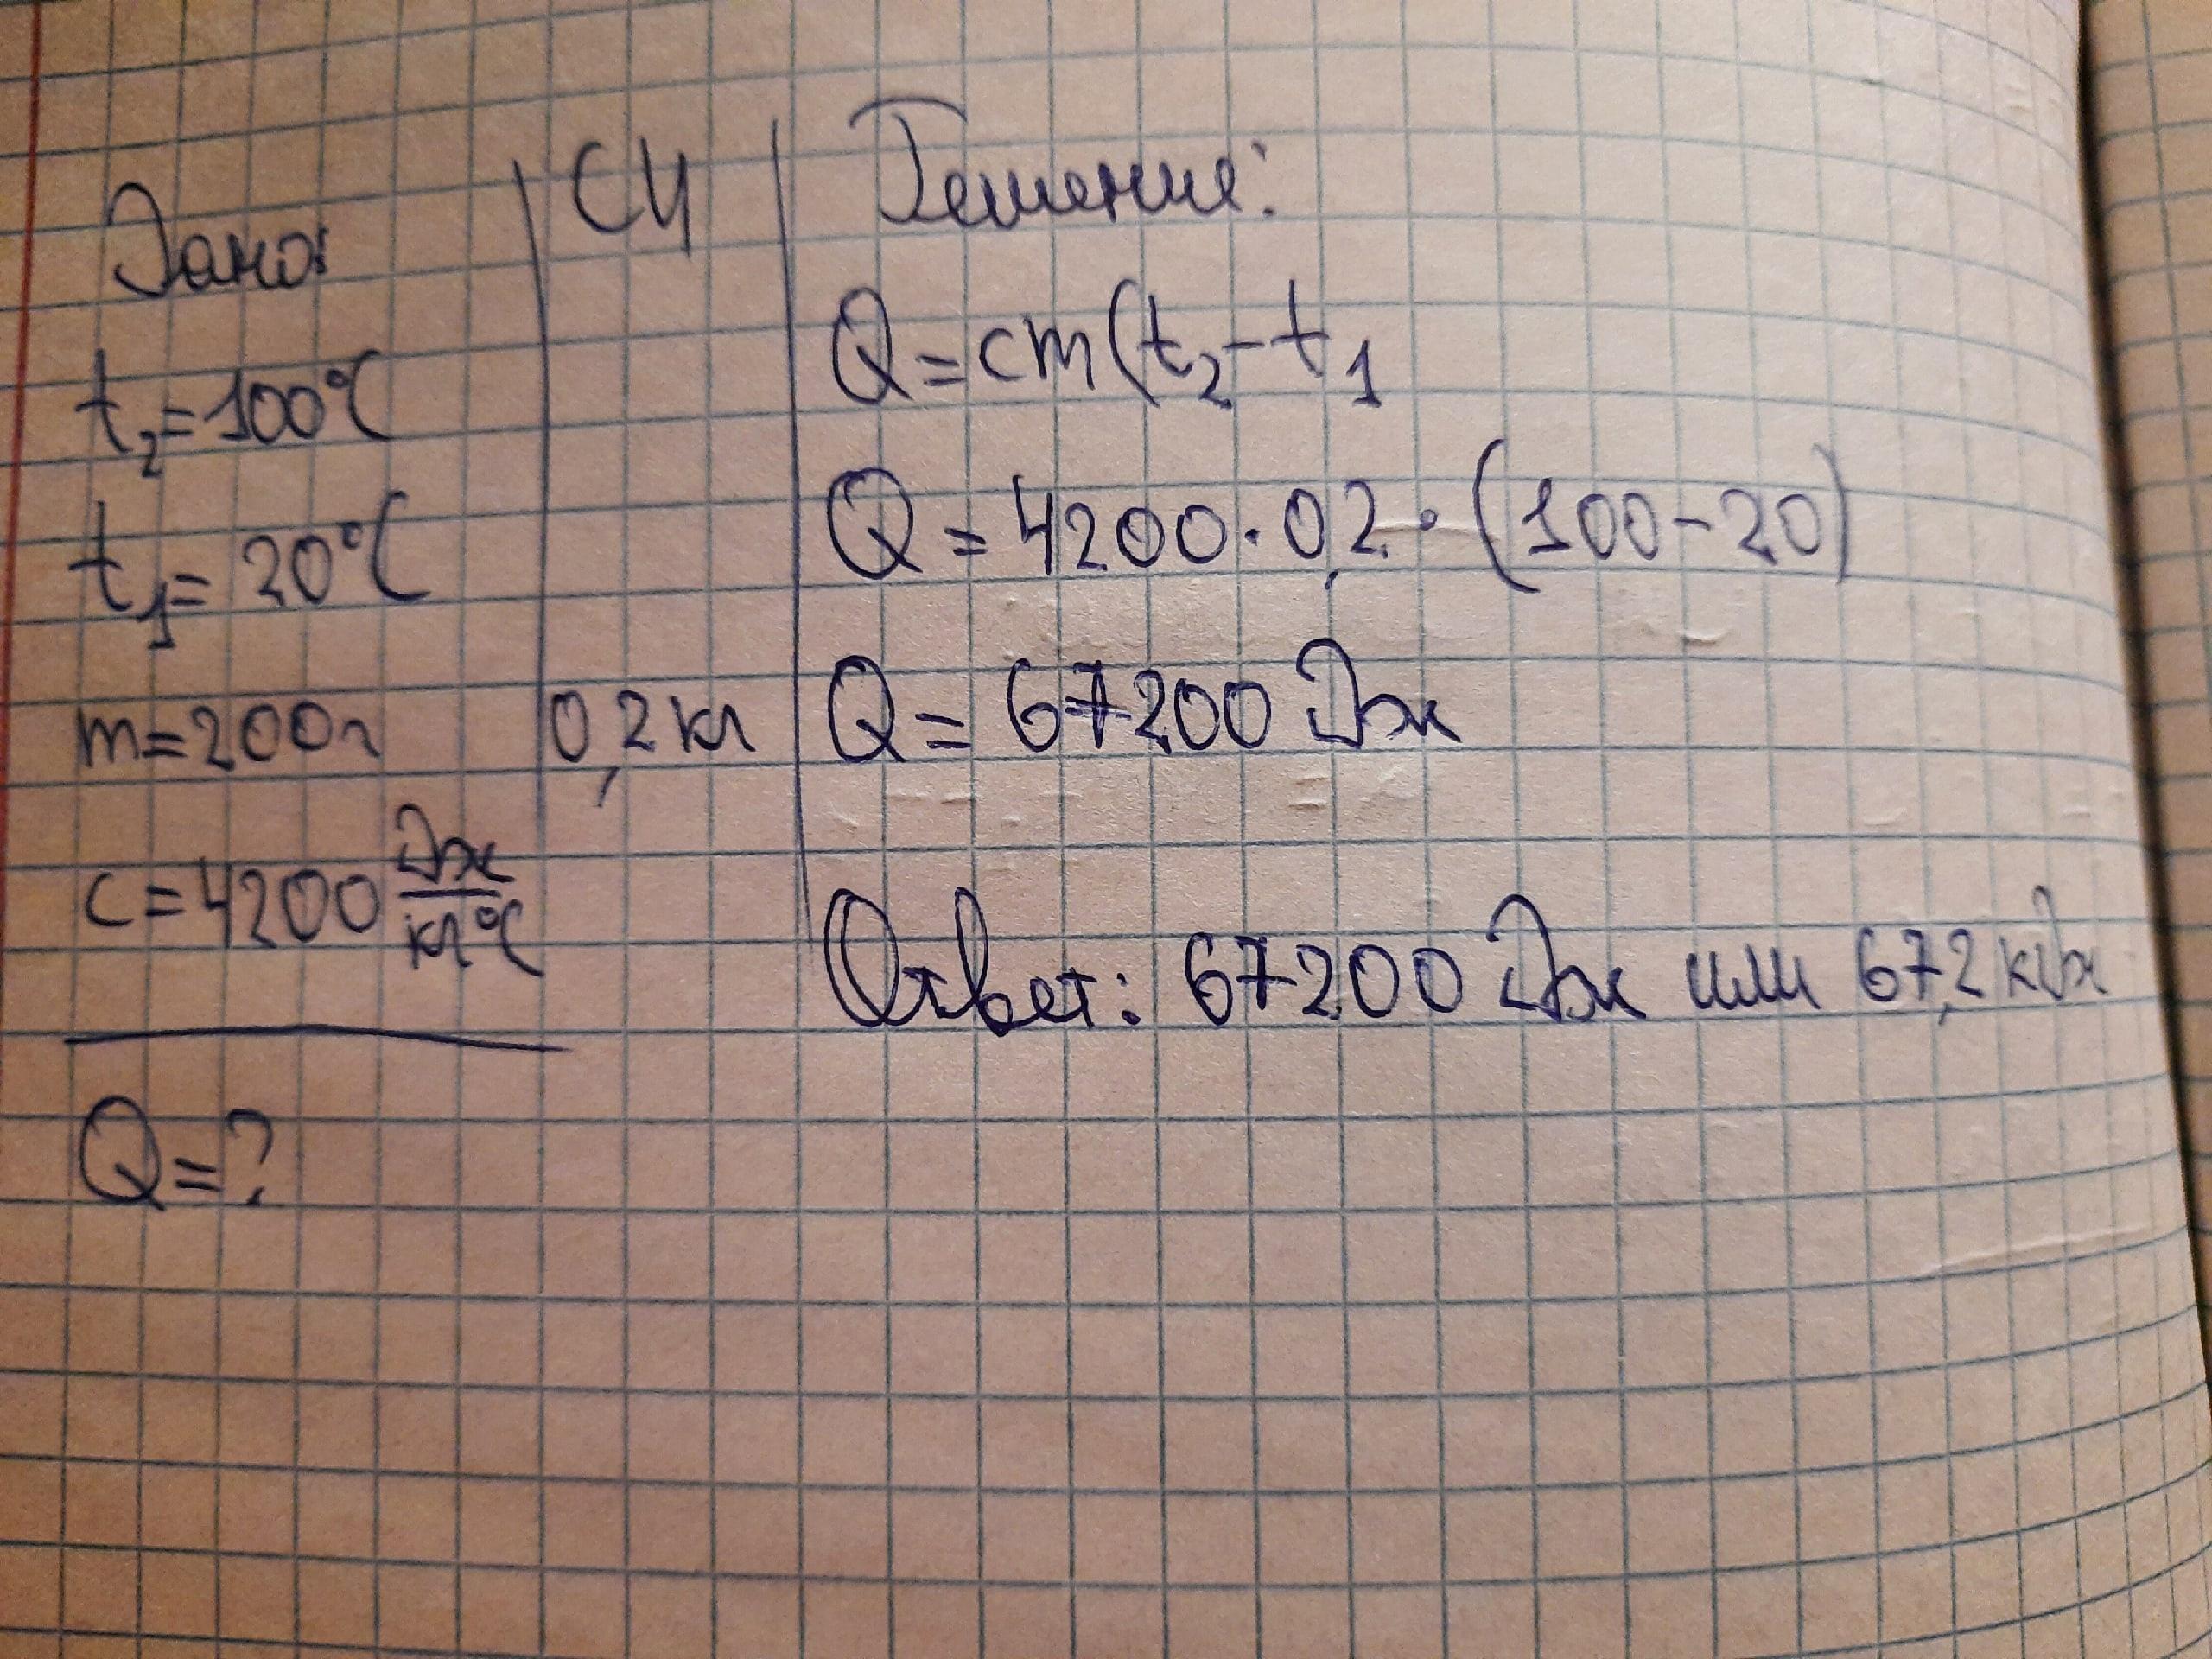 Дано:
t₂=100°C
t₁=20°C
m=200г
c=4200 Дж/кг°C
Q=?
СИ
0,2 кг
Решение:
Q=cm(t₂-t₁
Q=4200·0,2·(100-20)
Q=67200 Дж
Ответ: 67200 Дж или 67,2 кДж